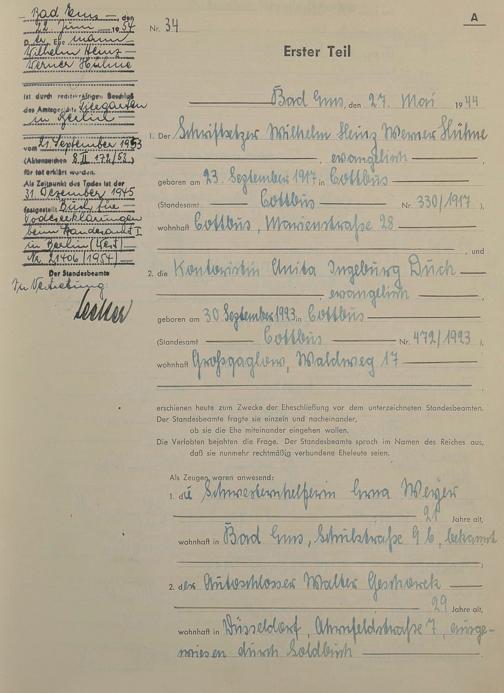 Bad Ems, den
22. Juni 1954
Der Ehemann
Wilhelm Heinz
Werner Hühne
ist durch rechtskräftigen Beschluß
des Amtsgerichts Tiergarten
in Berlin
vom 21. September 1953
(Aktenzeichen 2 II 172/52.)
für tot erklärt worden.
Als Zeitpunkt des Todes ist der
31. Dezember 1945
festgestellt. Buch für
Todeserklärungen
beim Standesamt I
in Berlin (West)
Nr. 21406/1954)
Der Standesbeamte
In Vertretung
A
Nr. 34
Erster Teil
Bad Ems, den 27. Mai 1944
1. Der Schriftsetzer Wilhelm Heinz Werner Hühne
, evangelisch
geboren am 23. September 1917 in Cottbus
(Standesamt Cottbus Nr. 330/1917.),
wohnhaft Cottbus, Marienstraße 28
, und
2. die Kontoristin Anita Ingeburg Dusch
, evangelisch
geboren am 30 September 1923 in Cottbus
(Standesamt Cottbus Nr. 472/1923),
wohnhaft Großgaglow, Waldweg 17
erschienen heute zum Zwecke der Eheschließung vor dem unterzeichneten Standesbeamten.
Der Standesbeamte fragte sie einzeln und nacheinander,
ob sie die Ehe miteinander eingehen wollen.
Die Verlobten bejahten die Frage. Der Standesbeamte sprach im Namen des Reiches aus,
daß sie nunmehr rechtmäßig verbundene Eheleute seien.
Als Zeugen waren anwesend:
1. die Schwesternhelferin Erna Weyer
21 Jahre alt,
wohnhaft in Bad Ems, Schulstraße 9 b, bekannt
2. der Autoschlosser Walter
29 Jahre alt,
wohnhaft in Düsseldorf, Ahrnfeldstraße 7, ausge-
wiesen durch Soldbuch